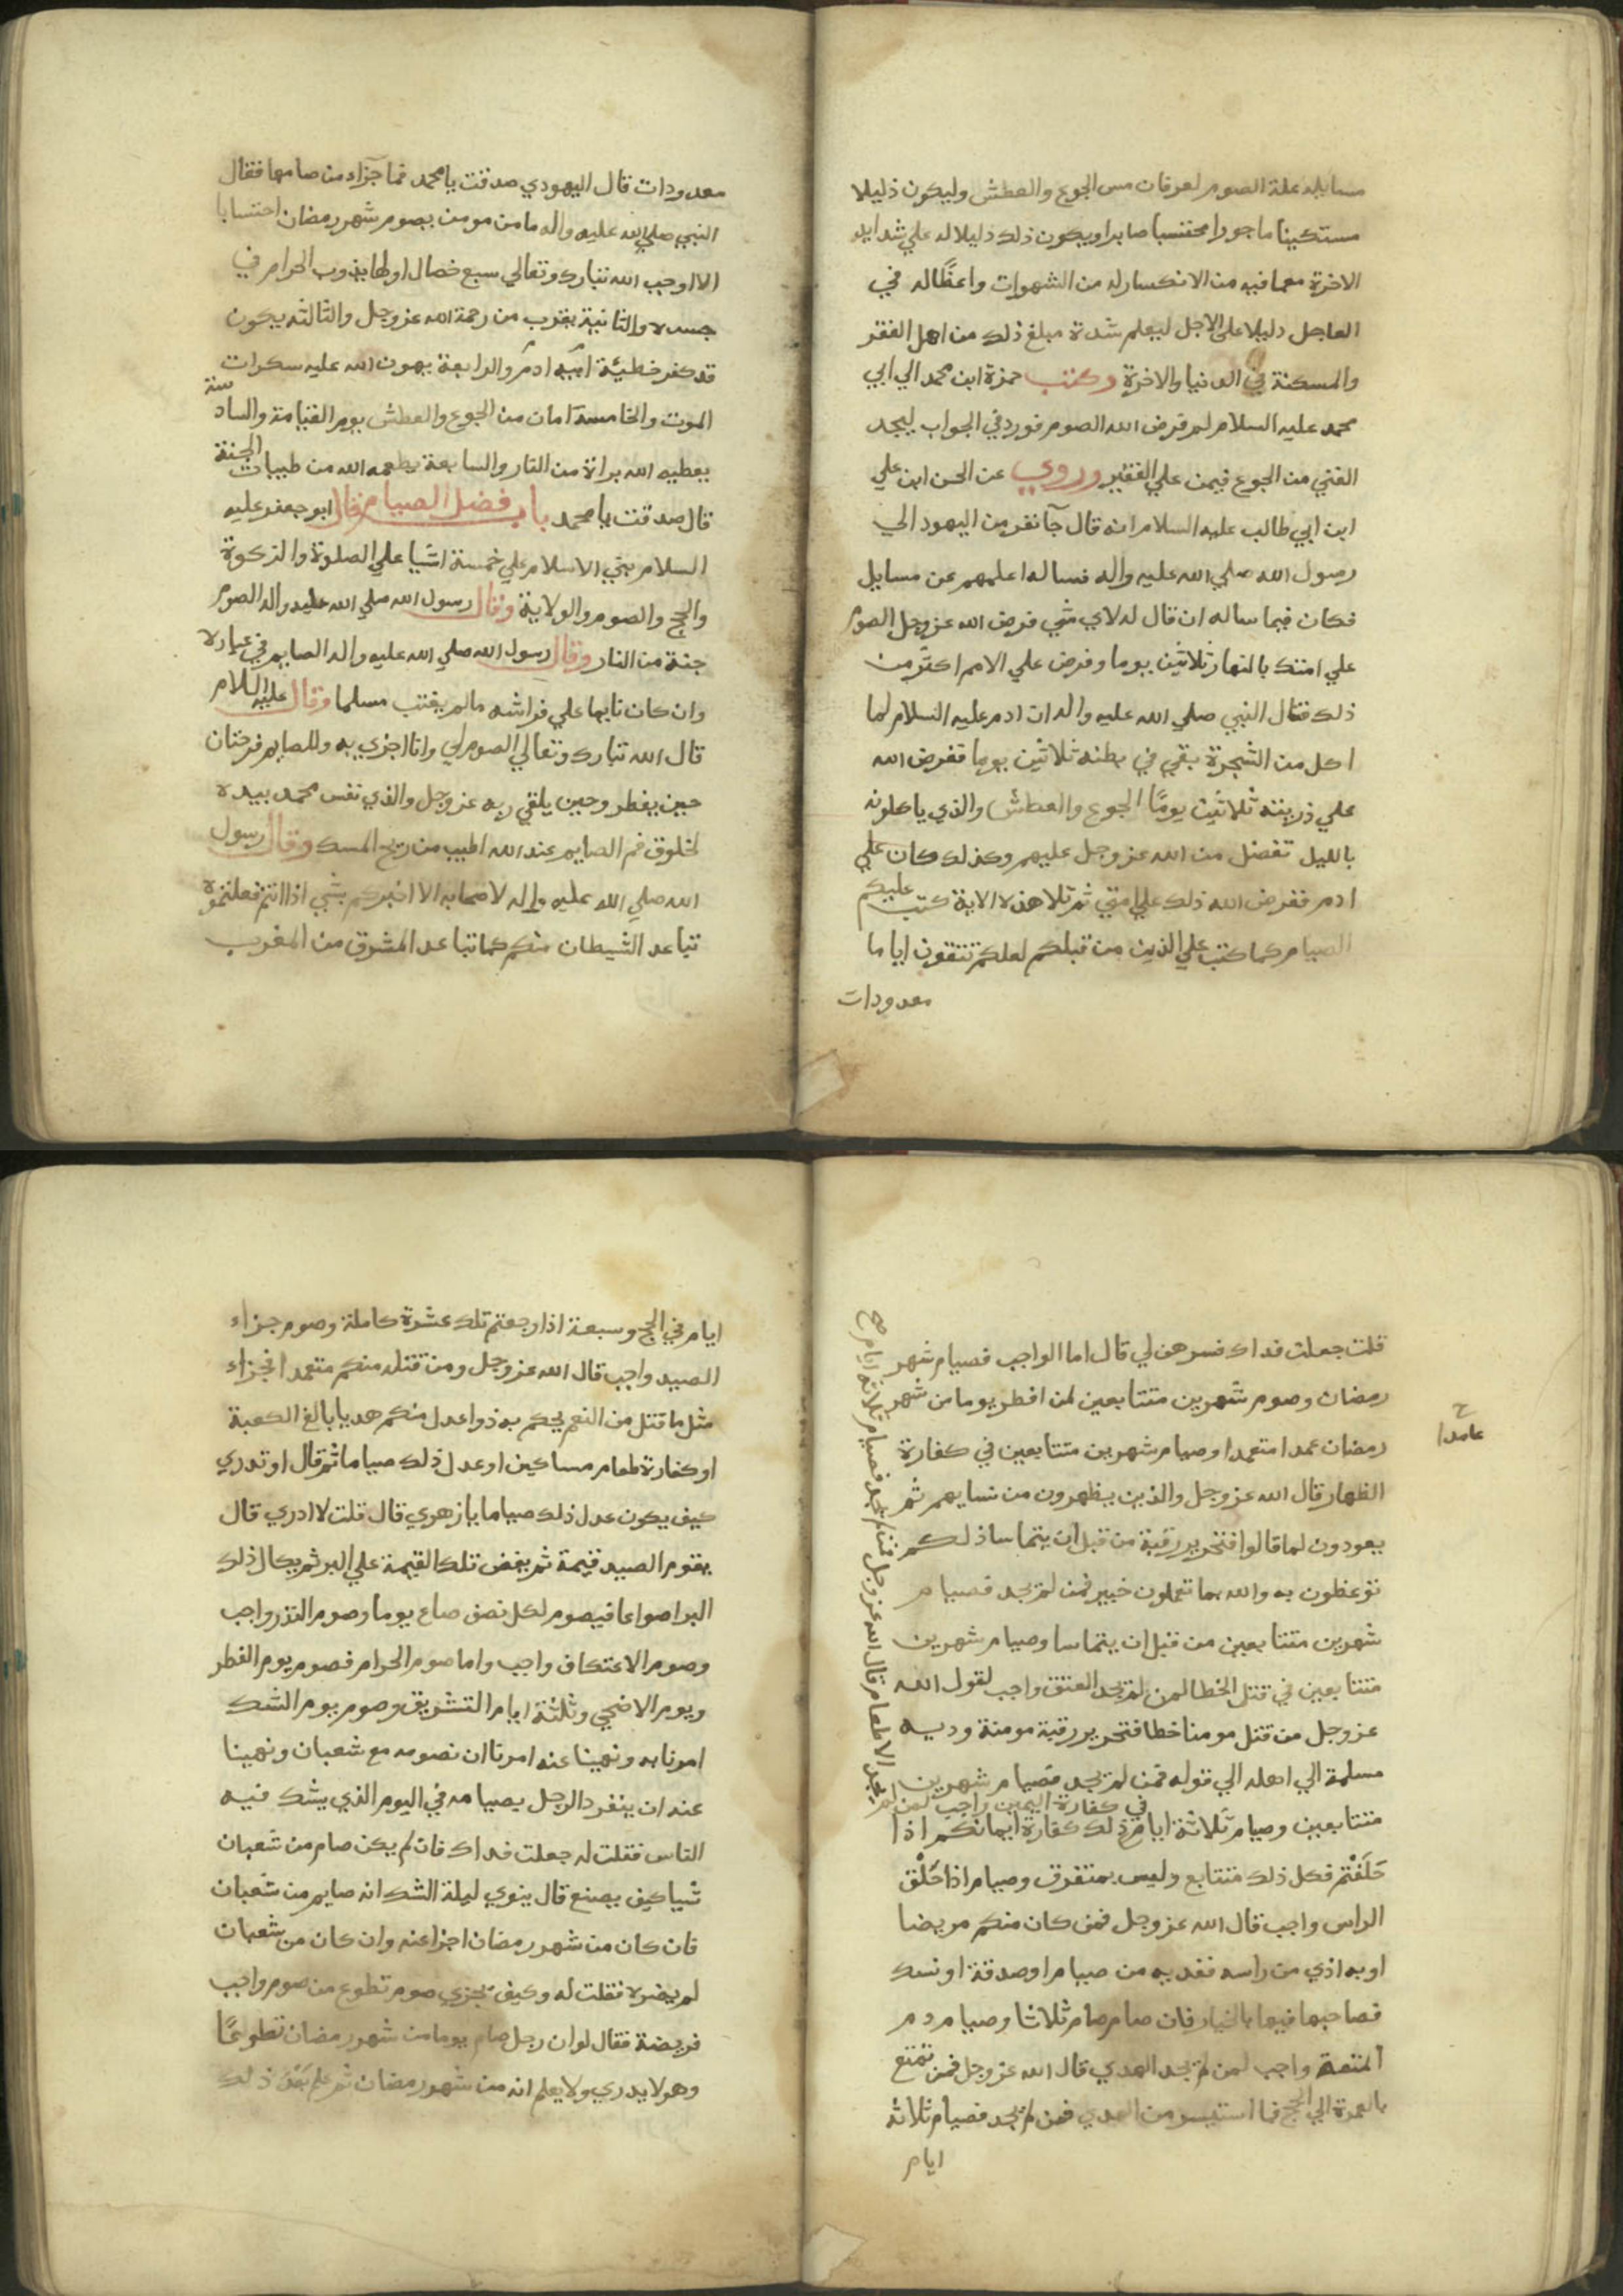 مسايله علة الصوم لعرفان مس الجوع والعطش وليكون ذليلا
مستكينا ماجورا محتسبا صابرا ويكون ذلك دليلا له علي شدايد
الاخرة معما فيه من الانكسار له من الشهوات واعظا له في
العاجل دليلا علي الاجل ليعلم شدة مبلغ ذلك من اهل الفقر
والمسكنة في الدنيا والاخرة وكتب حمزة ابن محمد الي ابي
محمد عليه السلام لم فرض الله الصوم فورد في الجواب ليجد
الغني من الجوع فيمن علي الفقير وروي عن الحسن ابن علي
ابن ابي طالب عليه السلام انه قال جآ نفر من اليهود الي
رسول الله صلي الله عليه واله فساله اعلمهم عن مسايل
فكان فيما ساله ان قال له لاي شي فرض الله عز وجل الصوم
علي امتك بالنهار ثلاثين يوما وفرض علي الامم اكثر من
ذلك فقال النبي صلي الله عليه واله ان ادم عليه السلام لما
اكل من الشجرة بقي في بطنه ثلاثين يوما ففرض الله
علي ذريته ثلاثين يومًا الجوع والعطش والذي ياكلونه
بالليل تفضل من الله عز وجل عليهم وكذلك كان علي
ادم ففرض الله ذلك علي امتي ثم تلا هذه الاية كتب عليكم
الصيام كما كتب علي الذين من قبلكم لعلكم تتقون اياما
معدودات
معدودات قال اليهودي صدقت يا محمد فما جزاء من صامها فقال
النبي صلي الله عليه واله ما من مومن يصوم شهر رمضان احتسابا
الا اوجب الله تبارك وتعالي سبع خصال اولها يذوب الحرام في
جسده والثانية يقرب من رحمة الله عز وجل والثالثه يكون
قد كفر خطيئة ابيه ادم والرابعة يهون الله عليه سكرات
الموت والخامسة امان من الجوع والعطش يوم القيامة والسادسة
يعطيه الله براة من النار والسابعة يطعمه الله من طيبات الجنة
قال صدقت يا محمد باب فضل الصيام قال ابو جعفر عليه
السلام بني الاسلام علي خمسة اشيا علي الصلوة والزكوة
والحج والصوم والولاية وقال رسول الله صلي الله عليه واله الصوم
جنة من النار وقال رسول الله صلي الله عليه واله الصايم في عبادة
وان كان نايما علي فراشه مالم يغتب مسلما وقال عليه السلام
قال الله تبارك وتعالي الصوم لي وانا اجزي به وللصايم فرحتان
حين يفطر وحين يلقي ربه عز وجل والذي نفس محمد بيده
لخلوق فم الصايم عند الله اطيب من ريح المسك وقال رسول
الله صلي الله عليه واله لاصحابه الا اخبركم بشي اذا انتم فعلتموه
تباعد الشيطان منكم كما تباعد المشرق من المغرب
قلت جعلت فداك فسرهن لي قال اما الواجب فصيام شهر
رمضان وصوم شهرين متتابعين لمن افطر يوما من شهر
رمضان عمدا متعمدا وصيام شهرين متتابعين في كفارة
ح
عامدا
الظهار قال الله عز وجل والذين يظهرون من نسايهم ثم
يعودون لما قالوا فتحرير رقبة من قبل ان يتماسا ذلكم
توعظون به والله بما تعملون خبير فمن لم يجد فصيام
شهرين متتابعين من قبل ان يتماسا وصيام شهرين
متتابعين في قتل الخطا لمن لم يجد العتق واجب لقول الله
عز وجل من قتل مومنا خطا فتحرير رقبة مومنة وديه
مسلمة الي اهله الي قوله فمن لم يجد فصيام شهرين
متتابعين وصيام ثلاثة ايام ذلك كفارة ايمانكم اذا
في كفارة اليمين واجب لمن لم
يجد الاطعام قال الله عز وجل فمن لم يجد فصيام ثلاثه ايام صح
حَلَفْتم فكل ذلك متتابع وليس بمتفرق وصيام اذا حَلْق
الراس واجب قال الله عز وجل فمن كان منكم مريضا
او به اذي من راسه ففديه من صيام او صدقة او نسك
فصاحبها فيها بالخيار فان صام صام ثلاثا وصيام دم
المتعة واجب لمن لم يجد الهدي قال الله عز وجل فمن تمتع
بالعمرة الي الحج فما استيسر من الهدي فمن لم يجد فصيام ثلاثه
ايام
ايام في الحج وسبعة اذا رجعتم تلك عشرة كاملة وصوم جزاء
الصيد واجب قال الله عز وجل ومن قتله منكم متعمدا فجزاء
مثل ما قتل من النعم يحكم به ذوا عدل منكم هديا بالغ الكعبة
او كفارة طعام مساكين او عدل ذلك صياما ثم قال او تدري
كيف يكون عدل ذلك صياما يا زهري قال قلت لا ادري قال
يقوم الصيد قيمة ثم يفض تلك القيمة علي البر ثم يكال ذلك
البر اصواعا فيصوم لكل نصف صاع يوما وصوم النذر واجب
وصوم الاعتكاف واجب واما صوم الحرام فصوم يوم الفطر
ويوم الاضحي وثلثة ايام التشريق وصوم يوم الشك
امرنا به ونهينا عنه امرنا ان نصومه مع شعبان ونهينا
عنه ان ينفرد الرجل بصيامه في اليوم الذي يشك فيه
الناس فقلت له جعلت فداك فان لم يكن صام من شعبان
شيا كيف يصنع قال ينوي ليلة الشك انه صايم من شعبان
فان كان من شهر رمضان اجزا عنه وان كان من شعبان
لم يضره فقلت له وكيف يجزي صوم تطوع من صوم واجب
فريضة فقال لو ان رجل صام يوما من شهر رمضان تطوعًا
وهو لا يدري ولا يعلم انه من شهر رمضان ثم علم بَعْدَ ذلك